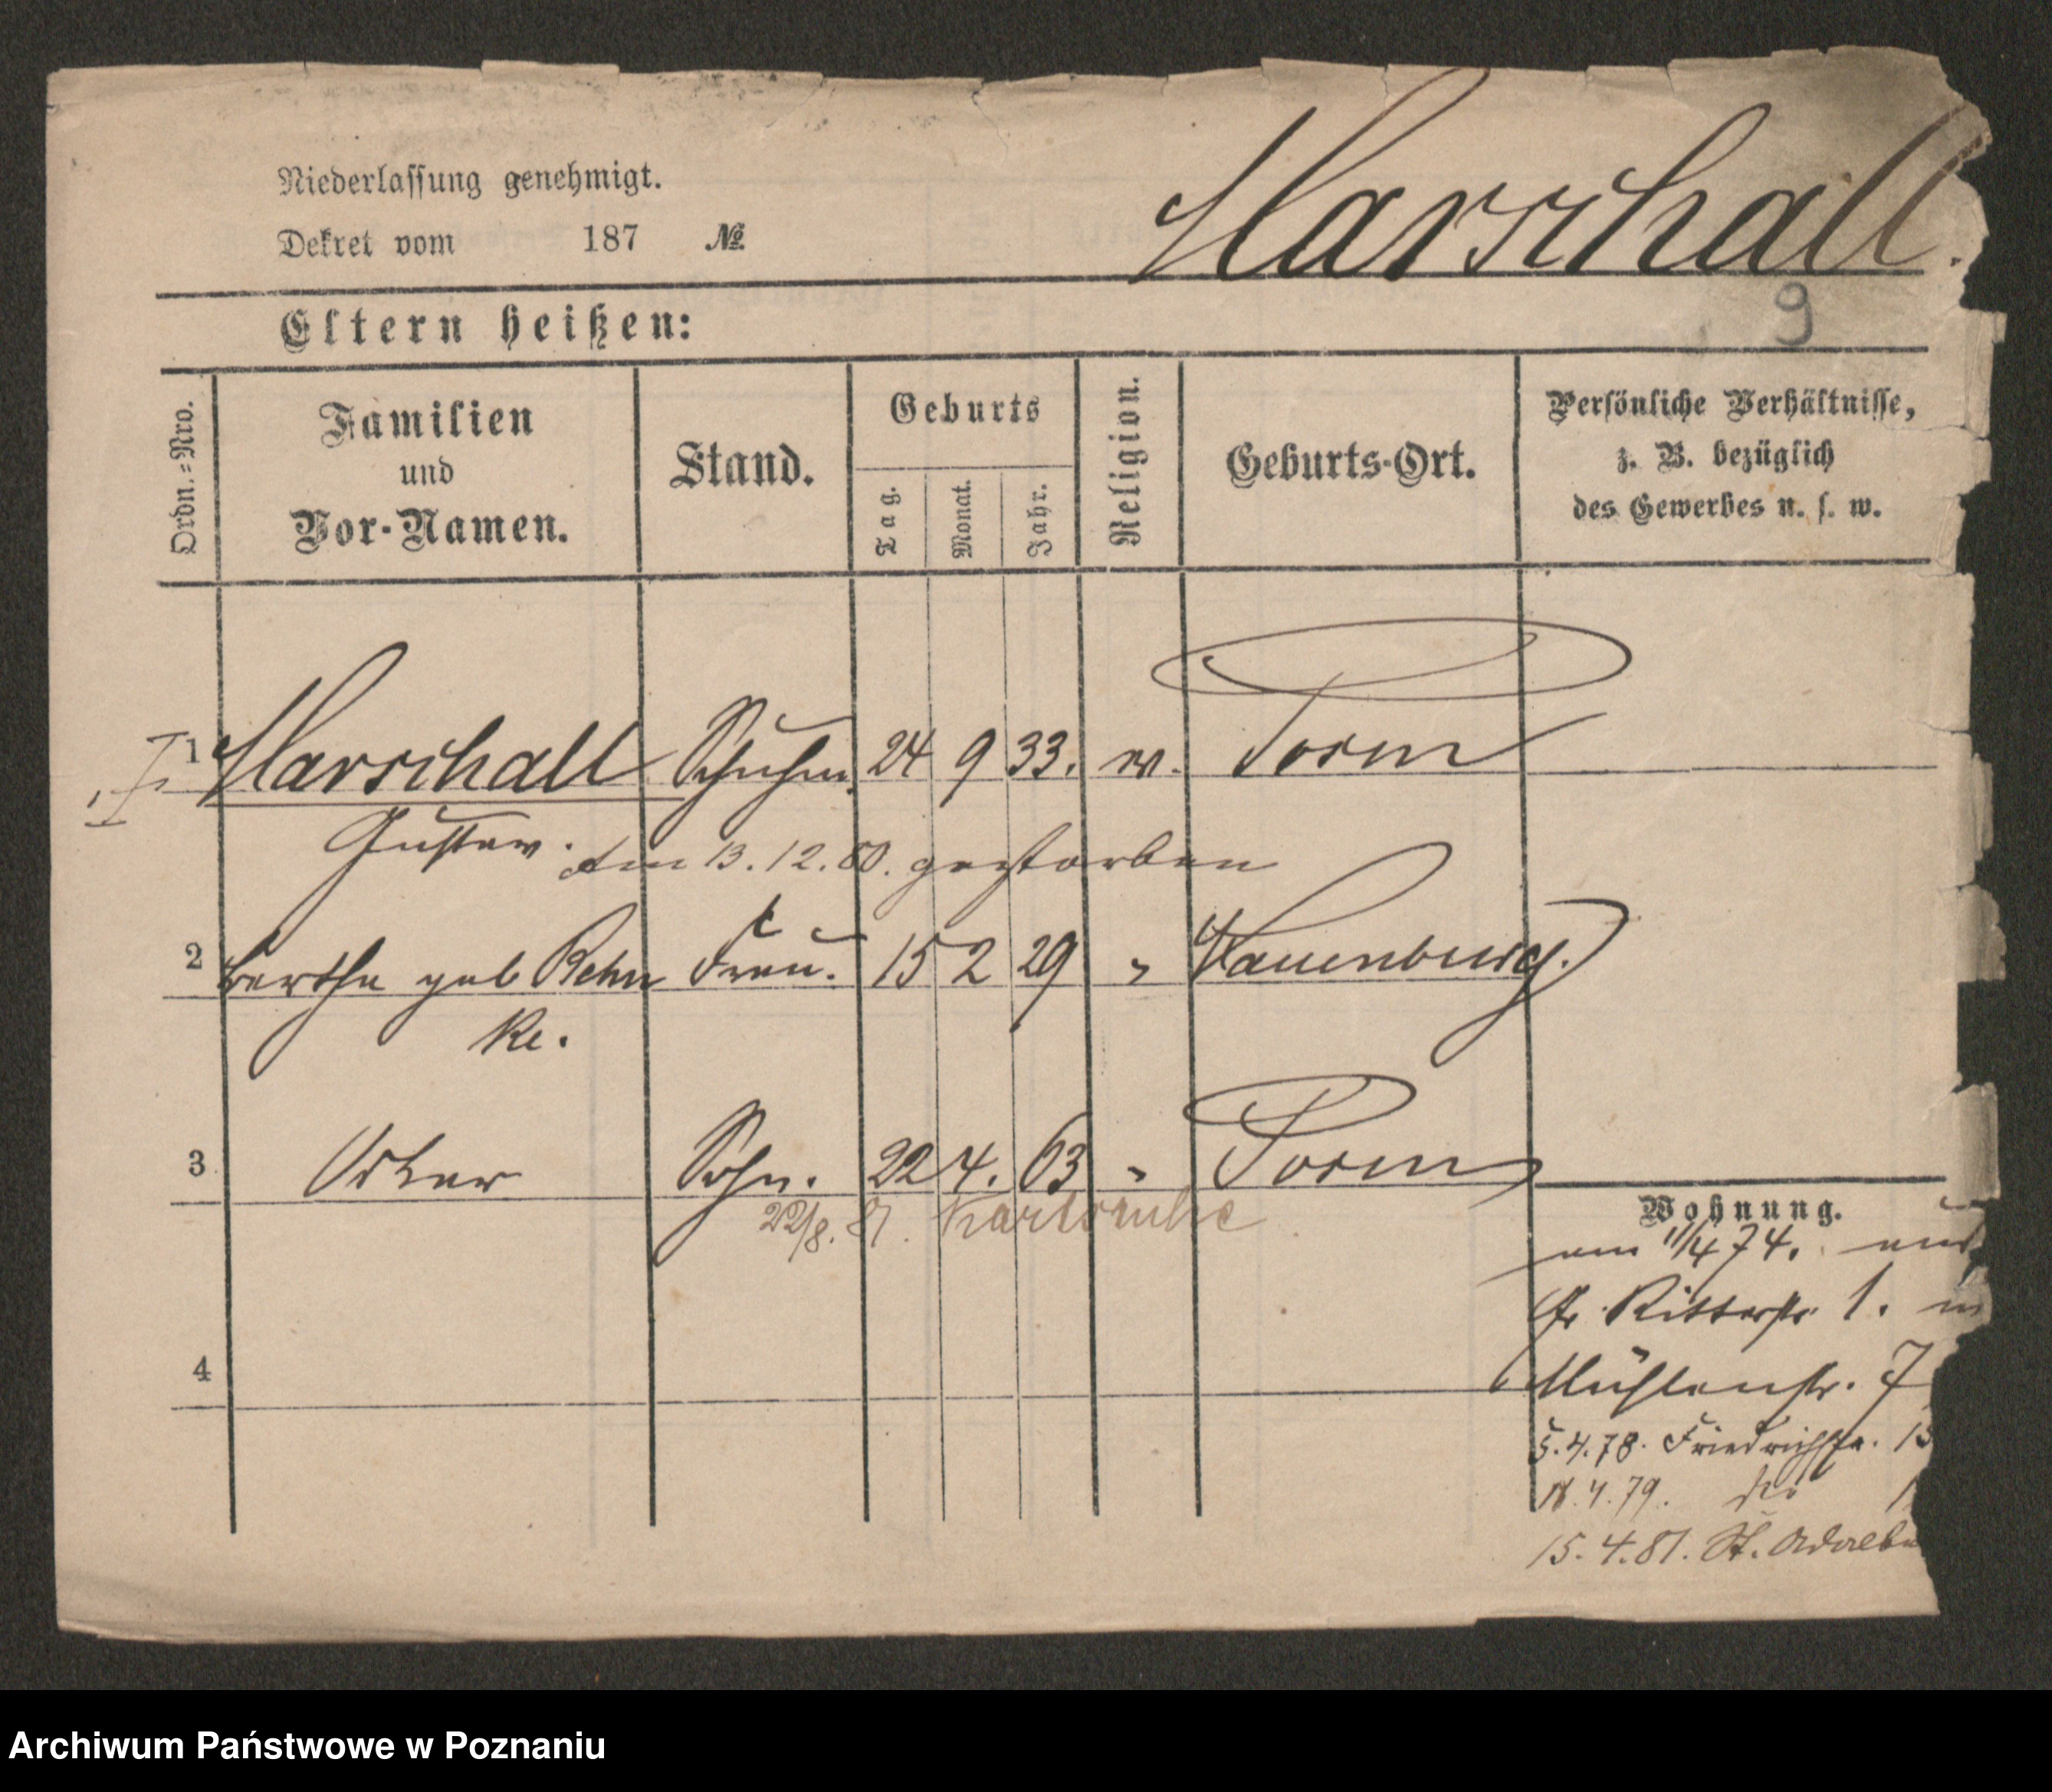 Niederlassung genehmigt.
Dekret vom 187 №
Marschall.
9
Eltern heißen:
Ordn.=Nro.
Familien
und
Vor-Namen.
Stand.
Geburts
Tag.
Monat.
Jahr.
Religion.
Geburts-Ort.
Persönliche Verhältnisse,
z. B. bezüglich
des Gewerbes u. s. w.
1 Marschall Schuhm. 24 9 33. ev. Posen
Gustav. Am 13.12.80. gestorben
2 Bertha geb Rehn Frau. 15 2 29 " Lauenburg.
ke.
3 Oskar Sohn. 22 4. 63 " Posen
22/8. 81. Karlsruhe
4
Wohnung.
am 1/4 74. aus
Gr. Ritterstr. 1. n
Mühlenstr. 7
5.4.78. Friedrichstr. 13
4.79. do 1
15.4.81. St. Adalb
Archiwum Państwowe w Poznaniu